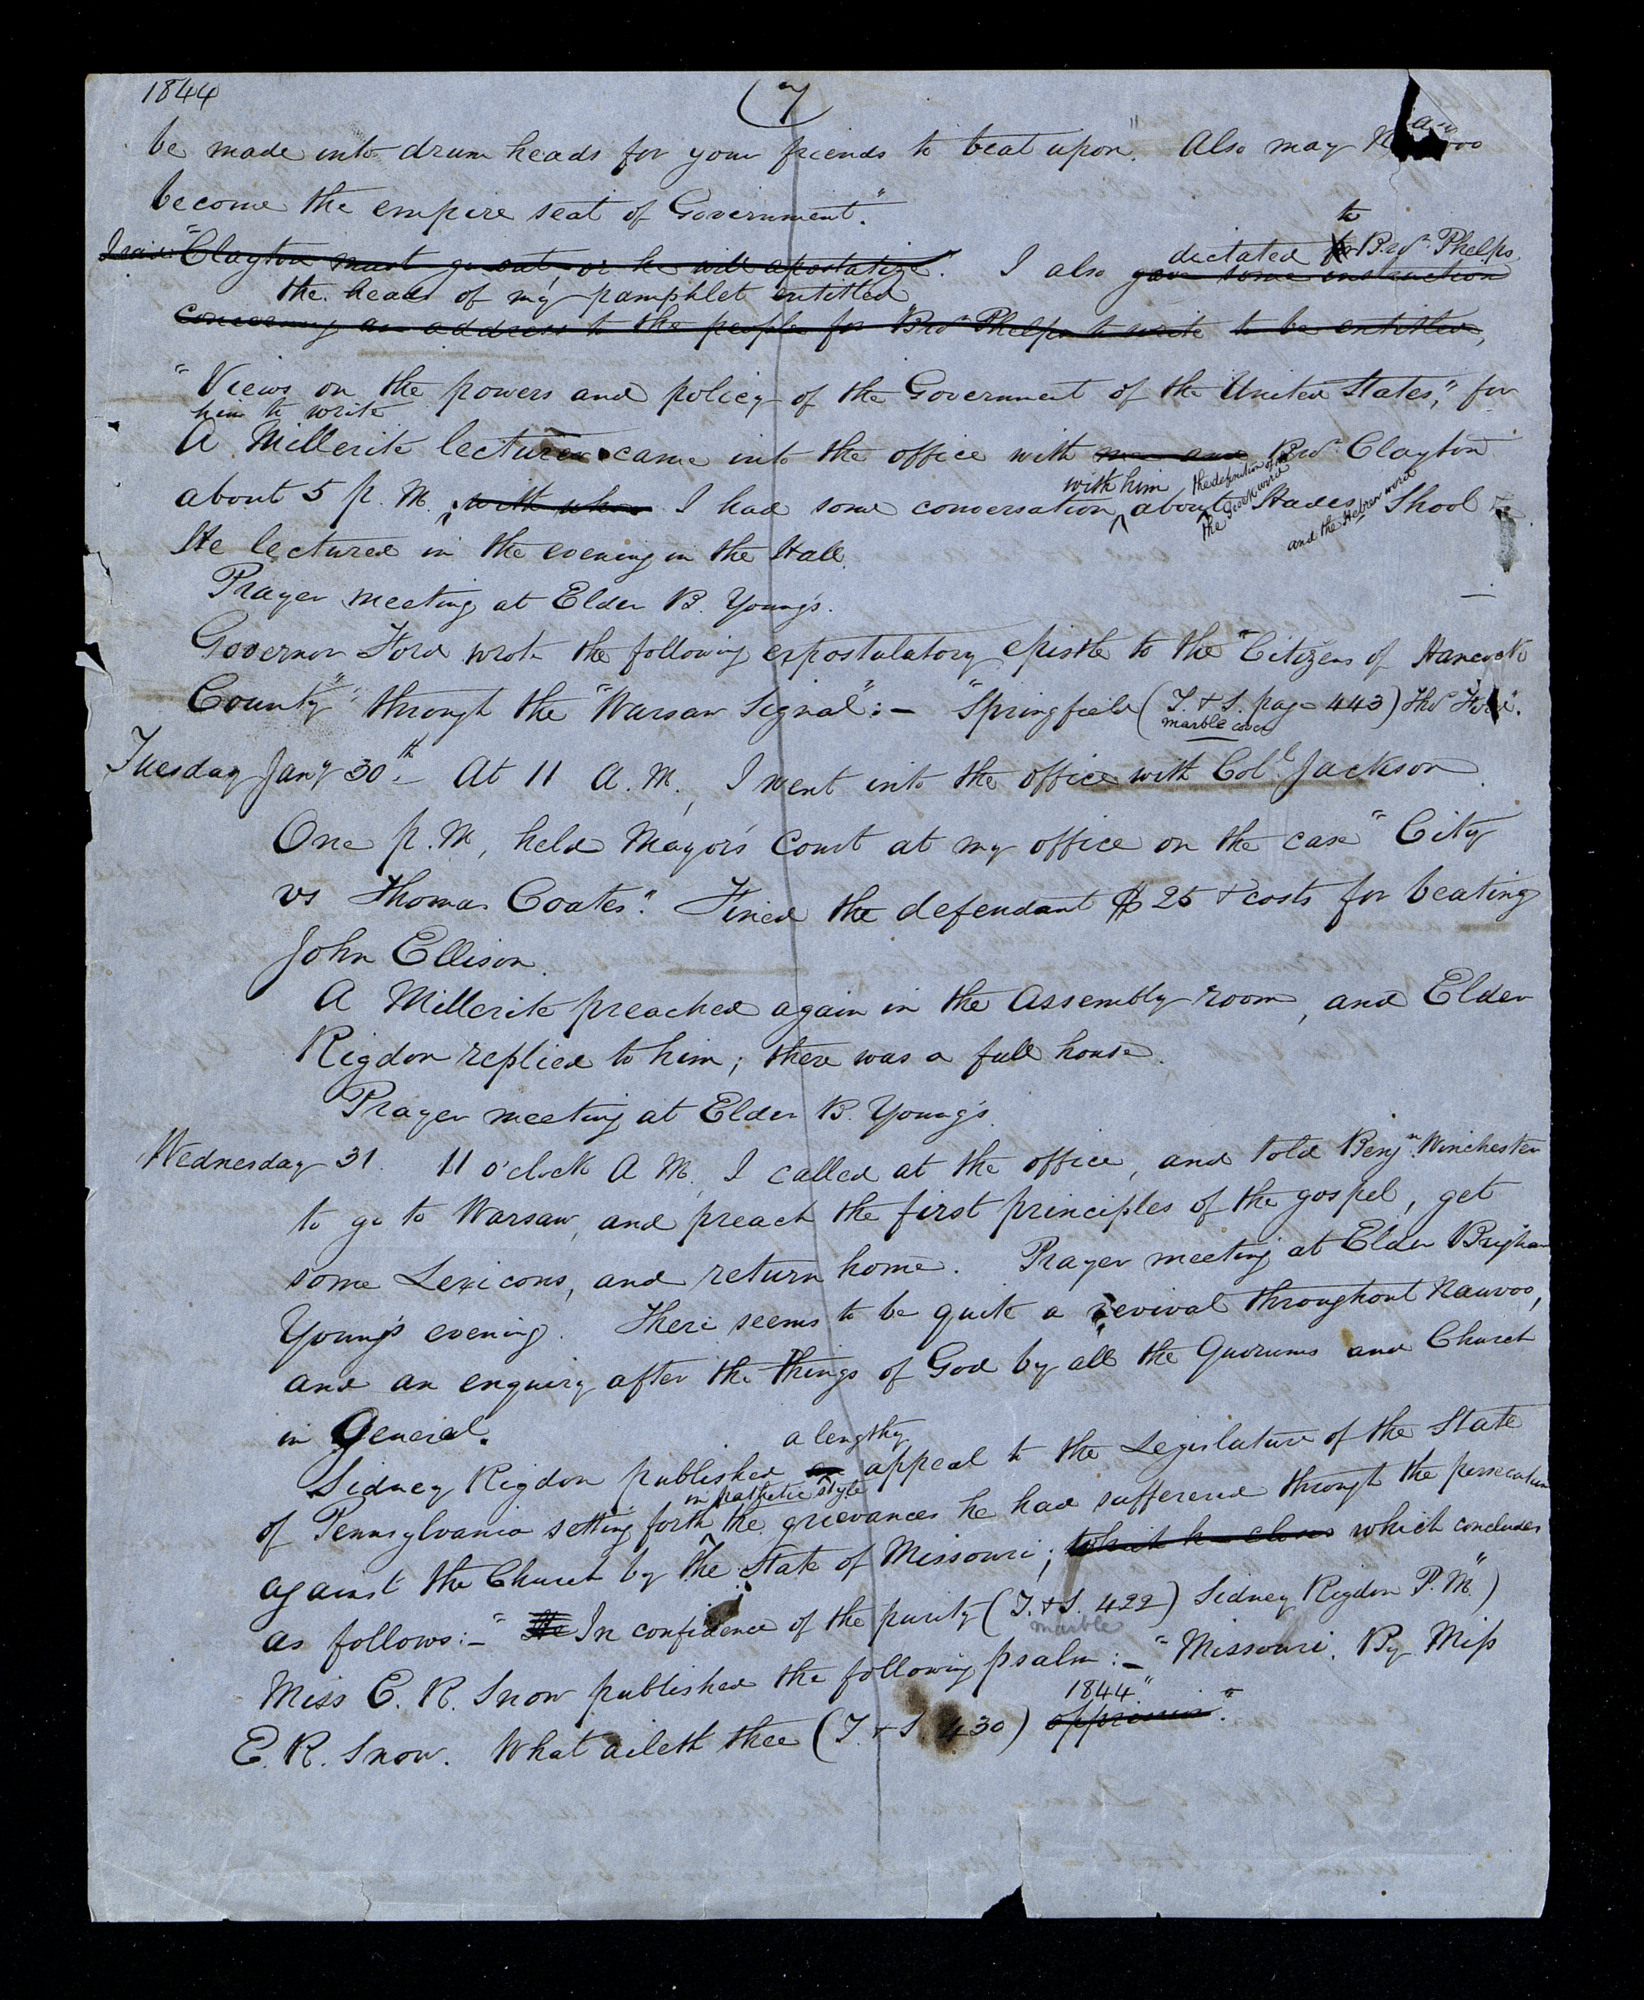 1844
(7)
be made into drum heads for your friends to beat upon." Also may Nauvoo
become the empire seat of Government."
I said "Clayton must go out or he will apostatize". I also gave some instruction dictated to Bro. Phelps
the heads of my pamphlet entitled
concerning an address to the people for Bro. Phelps to write to be entitled,
"Views on the powers and policy of the Government of the United States," for
him to write
A Millerite lecturer came into the office with me and Bro. Clayton
about 5 p. M., with whom I had some conversation with him about the definition of the Greek word Hades, and the Hebrew word Shool &c.
He lectured in the evening in the Hall.
Prayer meeting at Elder B. Young's.
Governor Ford wrote the following expostulatory epistle to the "Citizens of Hancock
County" through the "Warsaw Signal":- "Springfield (T. & S. page 443) Tho.s Ford".
marble cover
Tuesday Jany 30th- At 11 A. M., I went into the office with Coll. Jackson.
One p. M, held Mayor's court at my office on the case "City
vs Thomas Coates". Fined the defendant $25 & costs for beating
John Ellison.
A Millerite preached again in the Assembly room, and Elder
Rigdon replied to him; there was a full house.
Prayer meeting at Elder B. Young's.
Wednesday 31. 11 o'clock A M. I called at the office, and told Benjn. Winchester
to go to Warsaw, and preach the first principles of the gospel, get
some Lexicons, and return home. Prayer meeting at Elder Brigham
Young's evening. There seems to be quite a revival throughout Nauvoo,
and an enquiry after the things of God by all the Quorums and Church
in General.
Sidney Rigdon published an a lengthy appeal to the Legislature of the State
of Pennsylvania setting forth in pathetic style the grievances he had suffered through the persecution
against the Church by the State of Missouri; which he closes which concludes
as follows:- "He In confidence of the purity (T. & S. 422) Sidney Rigdon P. M.")
marble
Miss E. R. Snow published the following psalm:- "Missouri. By Miss
E. R. Snow. What aileth thee (T. & S 430) oppression." 1844."